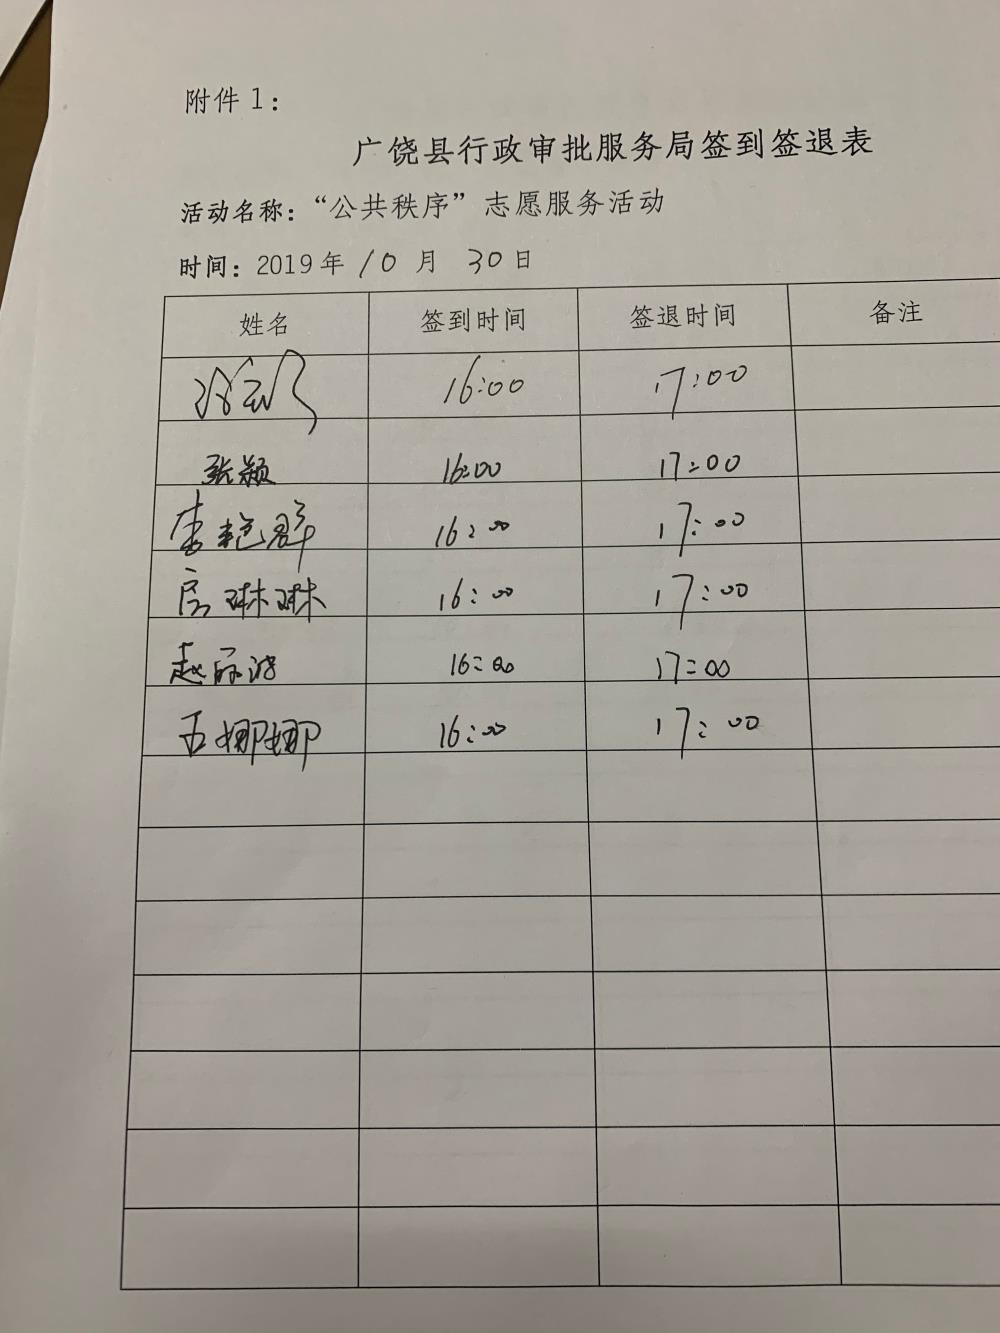 附件1：
广饶县行政审批服务局签到签退表
活动名称：“公共秩序”志愿服务活动
时间：2019年10月30日
姓名 签到时间 签退时间 备注
16:00 17:00
张颖 16:00 17:00
李艳群 16:00 17:00
房琳琳 16:00 17:00
赵丽波 16:00 17:00
王娜娜 16:00 17:00